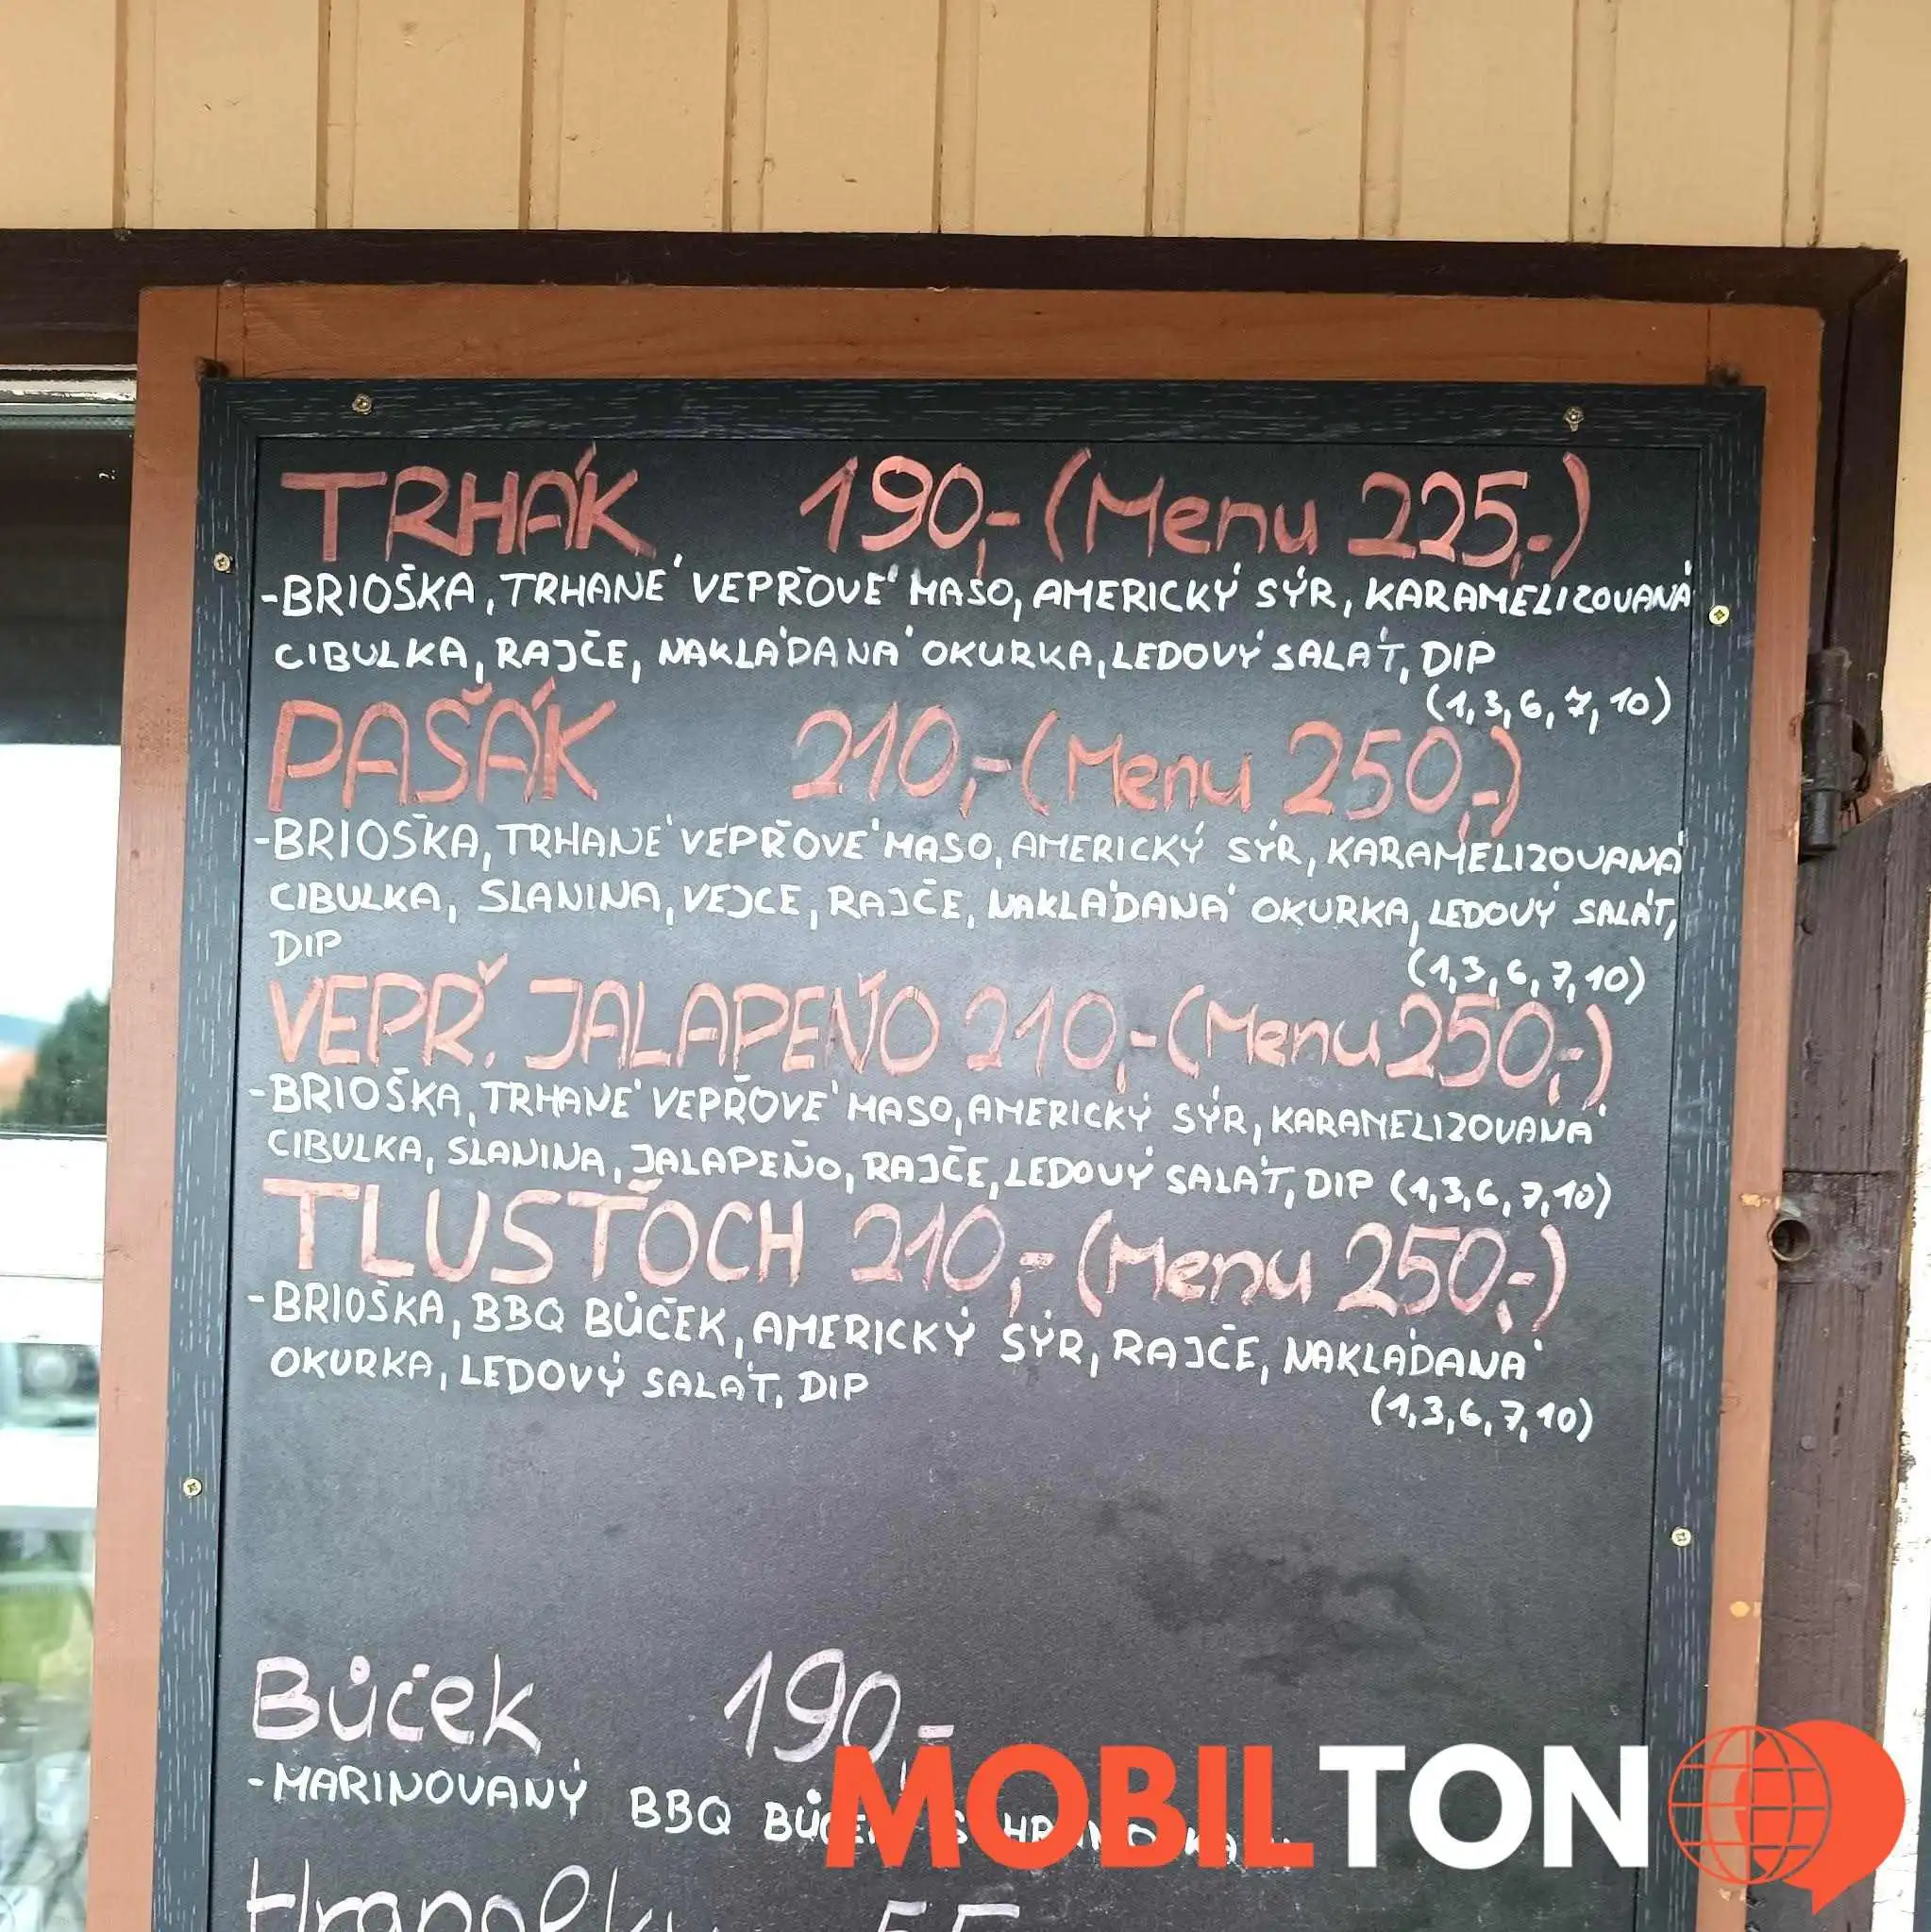 TRHÁK 190,- (Menu 225,-)
-BRIOŠKA, TRHANÉ VEPŘOVÉ MASO, AMERICKÝ SÝR, KARAMELIZOVANÁ
CIBULKA, RAJČE, NAKLÁDANÁ OKURKA, LEDOVÝ SALÁT, DIP
(1,3,6,7,10)
PAŠÁK 210,- (Menu 250,-)
-BRIOŠKA, TRHANÉ VEPŘOVÉ MASO, AMERICKÝ SÝR, KARAMELIZOVANÁ
CIBULKA, SLANINA, VEJCE, RAJČE, NAKLÁDANÁ OKURKA, LEDOVÝ SALÁT,
DIP
(1,3,6,7,10)
VEPŘ. JALAPEŇO 210,- (Menu 250,-)
-BRIOŠKA, TRHANÉ VEPŘOVÉ MASO, AMERICKÝ SÝR, KARAMELIZOVANÁ
CIBULKA, SLANINA, JALAPEÑO, RAJČE, LEDOVÝ SALÁT, DIP (1,3,6,7,10)
TLUSŤOCH 210,- (Menu 250,-)
-BRIOŠKA, BBQ BŮČEK, AMERICKÝ SÝR, RAJČE, NAKLÁDANÁ
OKURKA, LEDOVÝ SALÁT, DIP
(1,3,6,7,10)
Bůček 190,-
-MARINOVANÝ BBQ
MOBIL TON